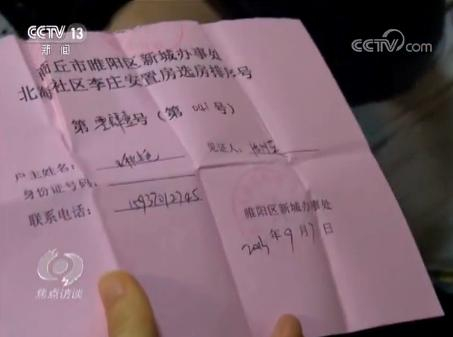 CCTV 13
新闻
CCTV.com
商丘市睢阳区新城办事处
北海社区李庄安置房选房排序号
第 号（第 041 号）
户主姓名：
见证人：
身份证号码：
联系电话：
睢阳区新城办事处
年 9 月 7 日
焦点访谈